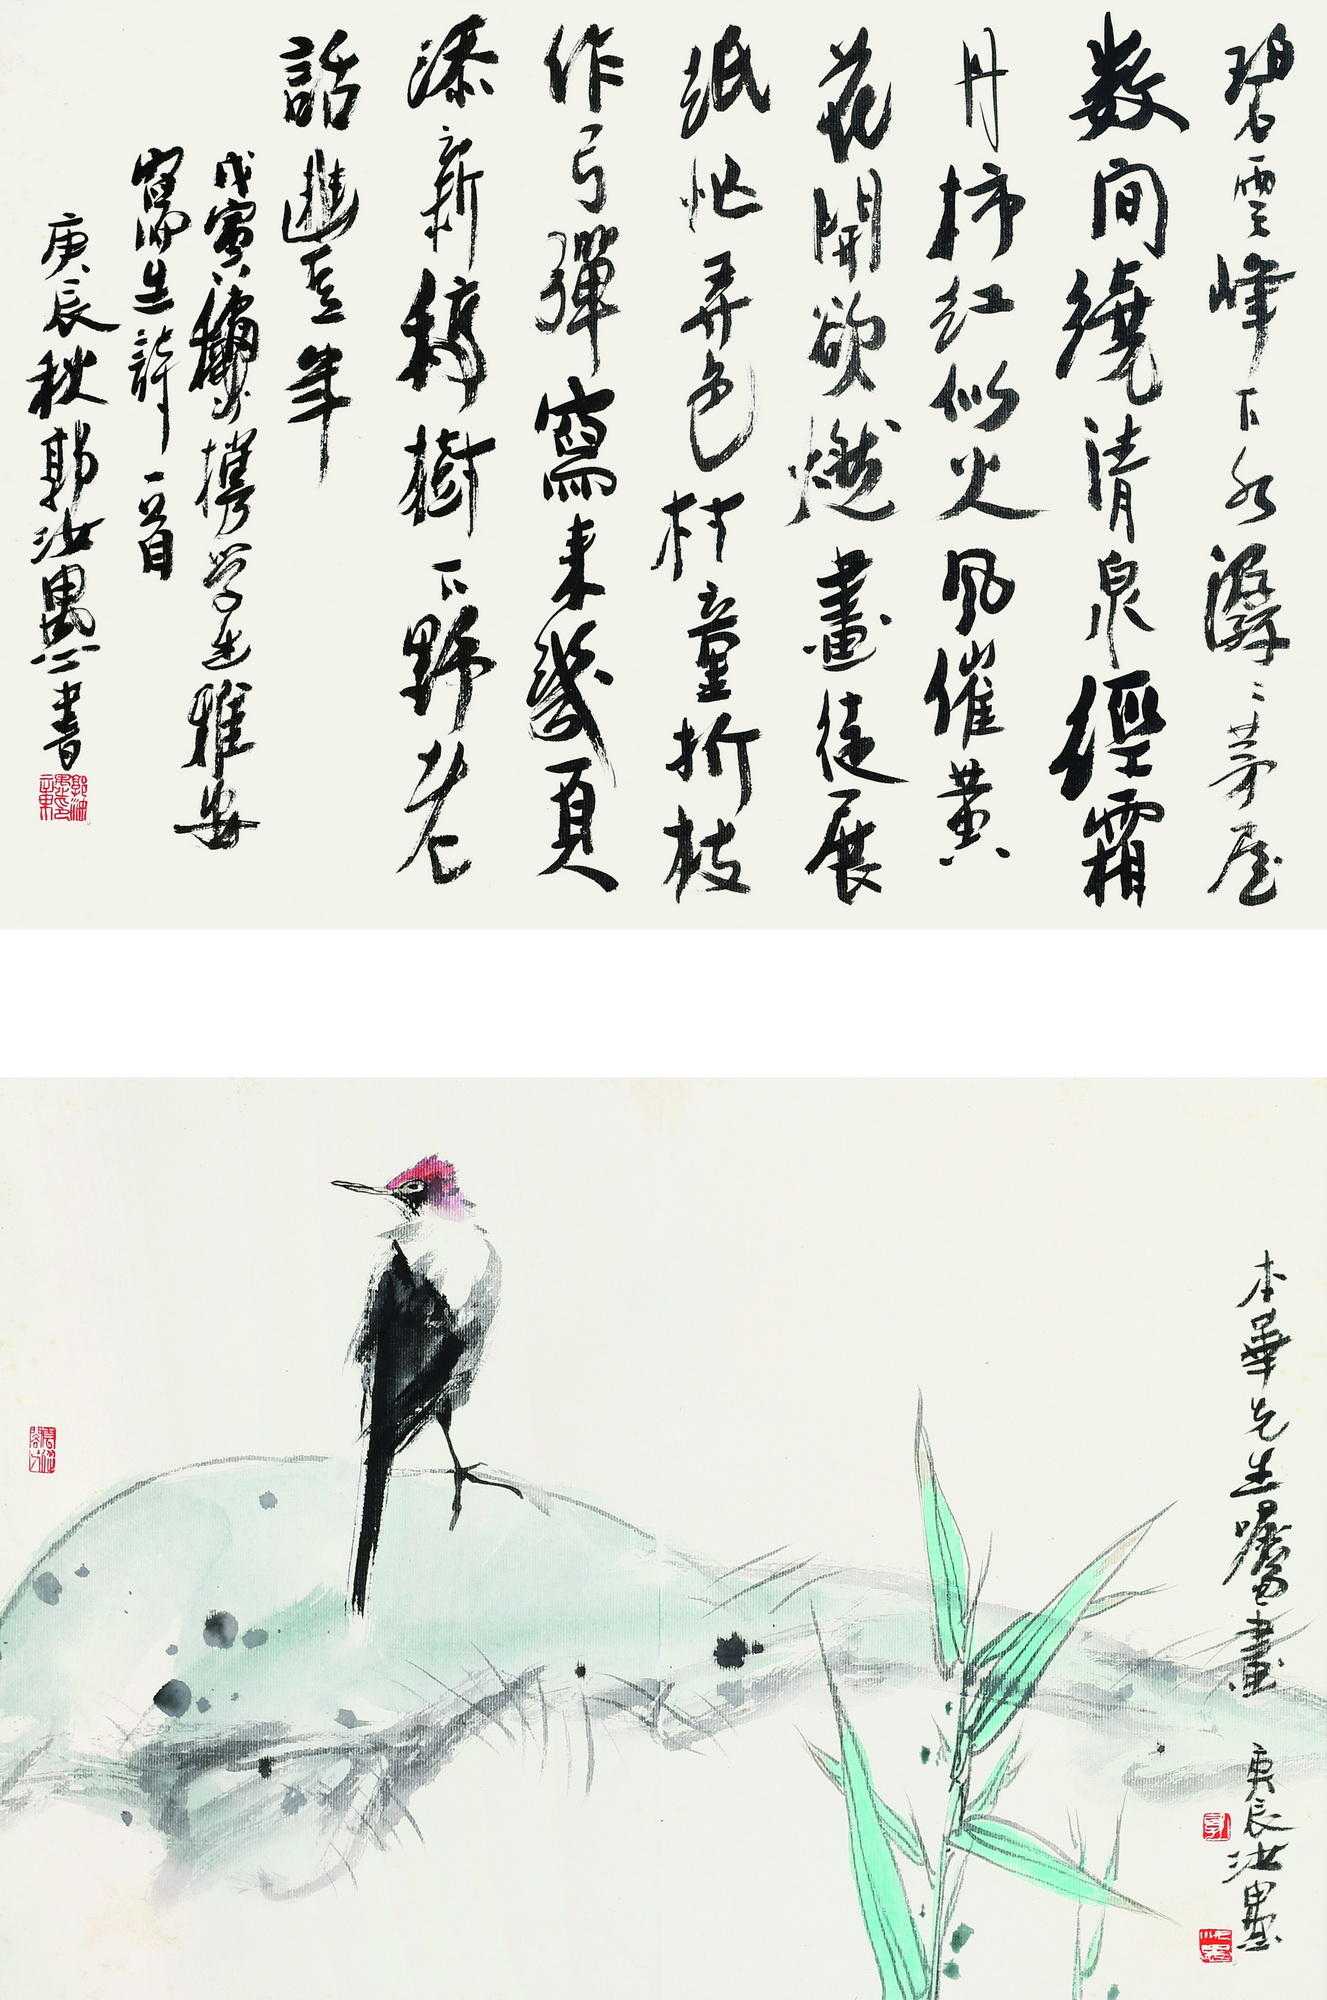 碧雲峰下水潺〻茅屋
數间繞清泉經霜
丹柿红似火風催黄
花開欲燃畫徒展
紙忙弄色村童折枝
作弓彈寫来幾頁
添新稿樹下野老
話豐年
戊寅攜学生雅安
寫生詩一首
庚辰秋郭汝愚書
本華先生屬畫
庚辰汝愚